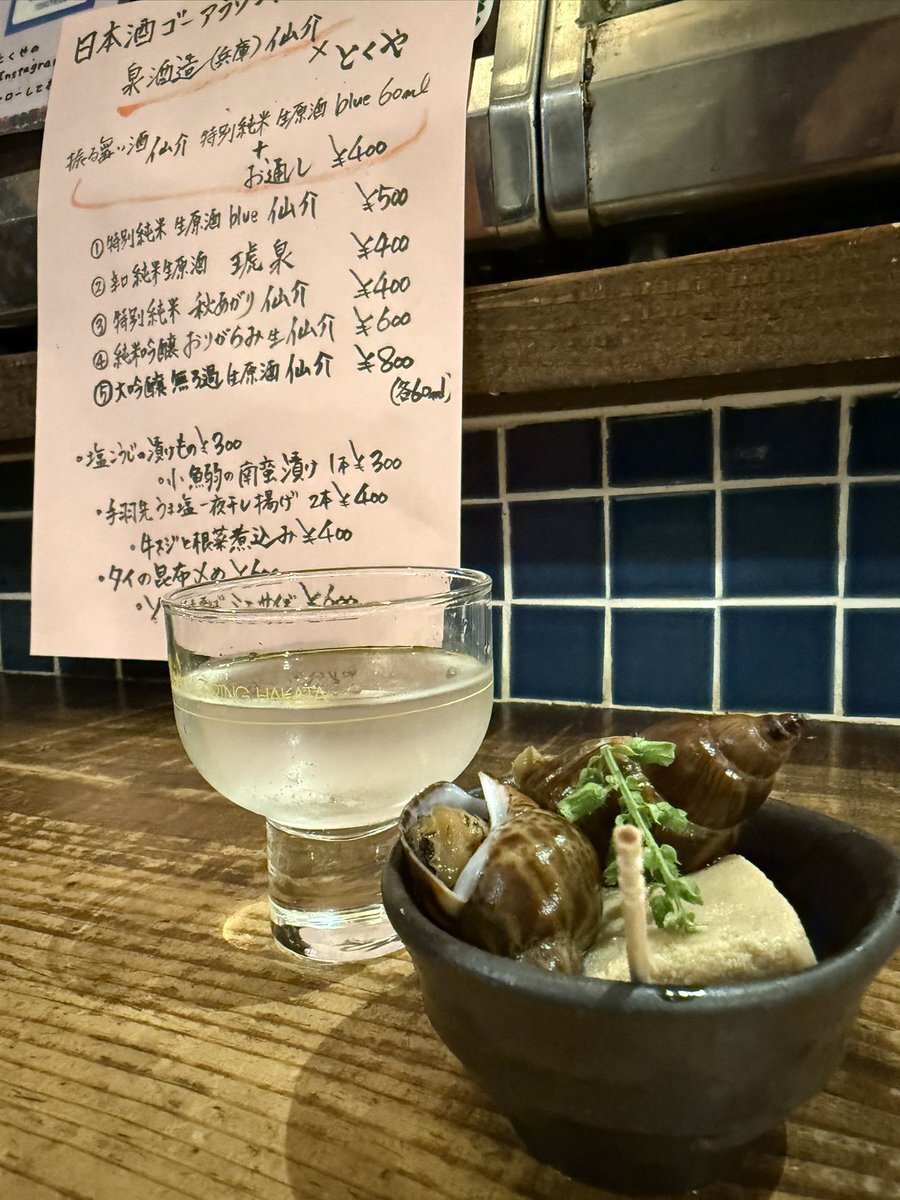 くやの
Instagra
ローしてネ
日本酒ゴーアラウン
泉酒造(兵庫)仙介
×とくや
振る舞い酒 仙介 特別純米 生原酒 blue 60ml
+
お通し ¥400
①特別純米 生原酒 blue 仙介 ¥500
②辛口純米生原酒 琥泉 ¥400
③特別純米 秋あがり 仙介 ¥400
④純米吟醸 おりがらみ生 仙介 ¥600
⑤大吟醸 無ろ過生原酒 仙介 ¥800
(各60ml)
・塩こうじの漬けもの ¥300
・小鰯の南蛮漬け 1本 ¥300
・手羽先うま塩一夜干し揚げ 2本 ¥400
・牛スジと根菜煮込み ¥400
・タイの昆布〆め
HAKATA